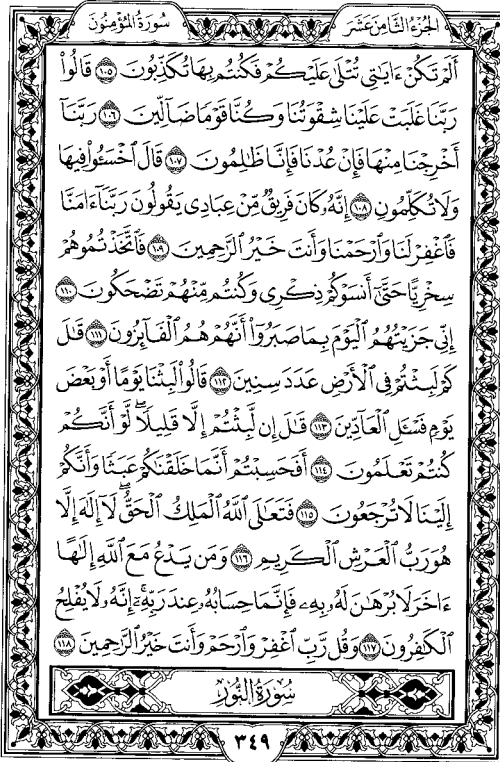 سُورَةُ المُؤْمِنُونَ
الجُزْءُ الثَّامِنَ عَشَرَ
أَلَمْ تَكُنْ ءَايَٰتِى تُتْلَىٰ عَلَيْكُمْ فَكُنتُم بِهَا تُكَذِّبُونَ ١٠٥ قَالُوا۟
رَبَّنَا غَلَبَتْ عَلَيْنَا شِقْوَتُنَا وَكُنَّا قَوْمًا ضَآلِّينَ ١٠٦ رَبَّنَآ
أَخْرِجْنَا مِنْهَا فَإِنْ عُدْنَا فَإِنَّا ظَٰلِمُونَ ١٠٧ قَالَ ٱخْسَـُٔوا۟ فِيهَا
وَلَا تُكَلِّمُونِ ١٠٨ إِنَّهُۥ كَانَ فَرِيقٌ مِّنْ عِبَادِى يَقُولُونَ رَبَّنَآ ءَامَنَّا
فَٱغْفِرْ لَنَا وَٱرْحَمْنَا وَأَنتَ خَيْرُ ٱلرَّٰحِمِينَ ١٠٩ فَٱتَّخَذْتُمُوهُمْ
سِخْرِيًّا حَتَّىٰٓ أَنسَوْكُمْ ذِكْرِى وَكُنتُم مِّنْهُمْ تَضْحَكُونَ ١١٠
إِنِّى جَزَيْتُهُمُ ٱلْيَوْمَ بِمَا صَبَرُوٓا۟ أَنَّهُمْ هُمُ ٱلْفَآئِزُونَ ١١١ قَٰلَ
كَمْ لَبِثْتُمْ فِى ٱلْأَرْضِ عَدَدَ سِنِينَ ١١٢ قَالُوا۟ لَبِثْنَا يَوْمًا أَوْ بَعْضَ
يَوْمٍ فَسْـَٔلِ ٱلْعَآدِّينَ ١١٣ قَٰلَ إِن لَّبِثْتُمْ إِلَّا قَلِيلًا ۖ لَّوْ أَنَّكُمْ
كُنتُمْ تَعْلَمُونَ ١١٤ أَفَحَسِبْتُمْ أَنَّمَا خَلَقْنَٰكُمْ عَبَثًا وَأَنَّكُمْ
إِلَيْنَا لَا تُرْجَعُونَ ١١٥ فَتَعَٰلَى ٱللَّهُ ٱلْمَلِكُ ٱلْحَقُّ ۖ لَآ إِلَٰهَ إِلَّا
هُوَ رَبُّ ٱلْعَرْشِ ٱلْكَرِيمِ ١١٦ وَمَن يَدْعُ مَعَ ٱللَّهِ إِلَٰهًا
ءَاخَرَ لَا بُرْهَٰنَ لَهُۥ بِهِۦ فَإِنَّمَا حِسَابُهُۥ عِندَ رَبِّهِۦٓ ۚ إِنَّهُۥ لَا يُفْلِحُ
ٱلْكَٰفِرُونَ ١١٧ وَقُل رَّبِّ ٱغْفِرْ وَٱرْحَمْ وَأَنتَ خَيْرُ ٱلرَّٰحِمِينَ ١١٨
سُورَةُ النُّورِ
٣٤٩